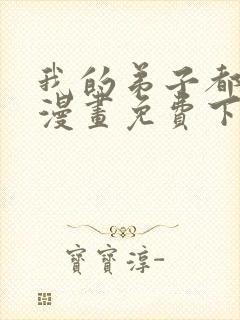 我的弟子都
漫畫免費下
寶寶淳-